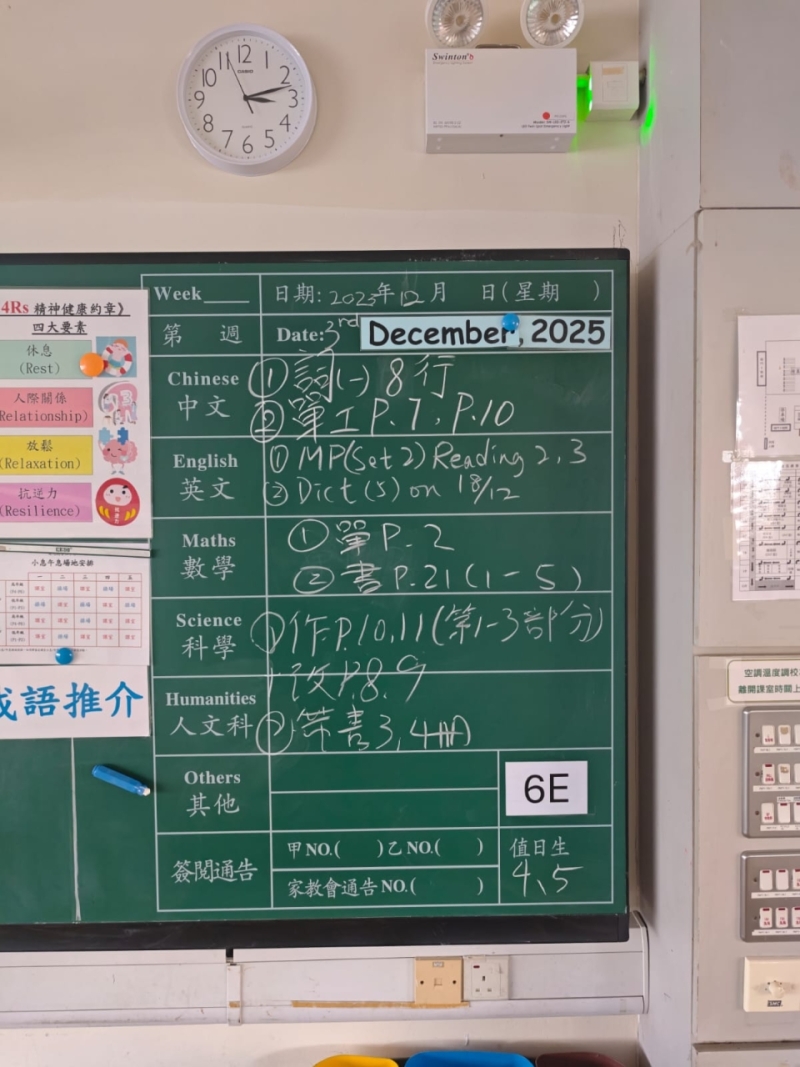 12 1 2 3 4 5 6 7 8 9 10 11
CASIO
Swinton's
4Rs 精神健康約章》
四大要素
休息
(Rest)
人際關係
Relationship)
放鬆
(Relaxation)
抗逆力
(Resilience)
小息午息場地安排
一 二 三 四 五
成語推介
Week____ 日期: 2025年12月 日(星期 )
第 週 Date: 3rd December, 2025
Chinese
中文
① 詞(一) 8行
② 單工 P.7, P.10
English
英文
① MP(Set 2) Reading 2, 3
② Dict (5) on 18/12
Maths
數學
① 單 P. 2
② 書 P.21 (1-5)
Science
科學
① 作P.10,11 (第1-3部分)
改P.8.9
Humanities
人文科
② 帶書3,4
Others
其他
6E
簽閱通告
甲NO.( )乙NO.( )
家教會通告NO.( )
值日生
4、5
空調溫度調校
離開課室時關上